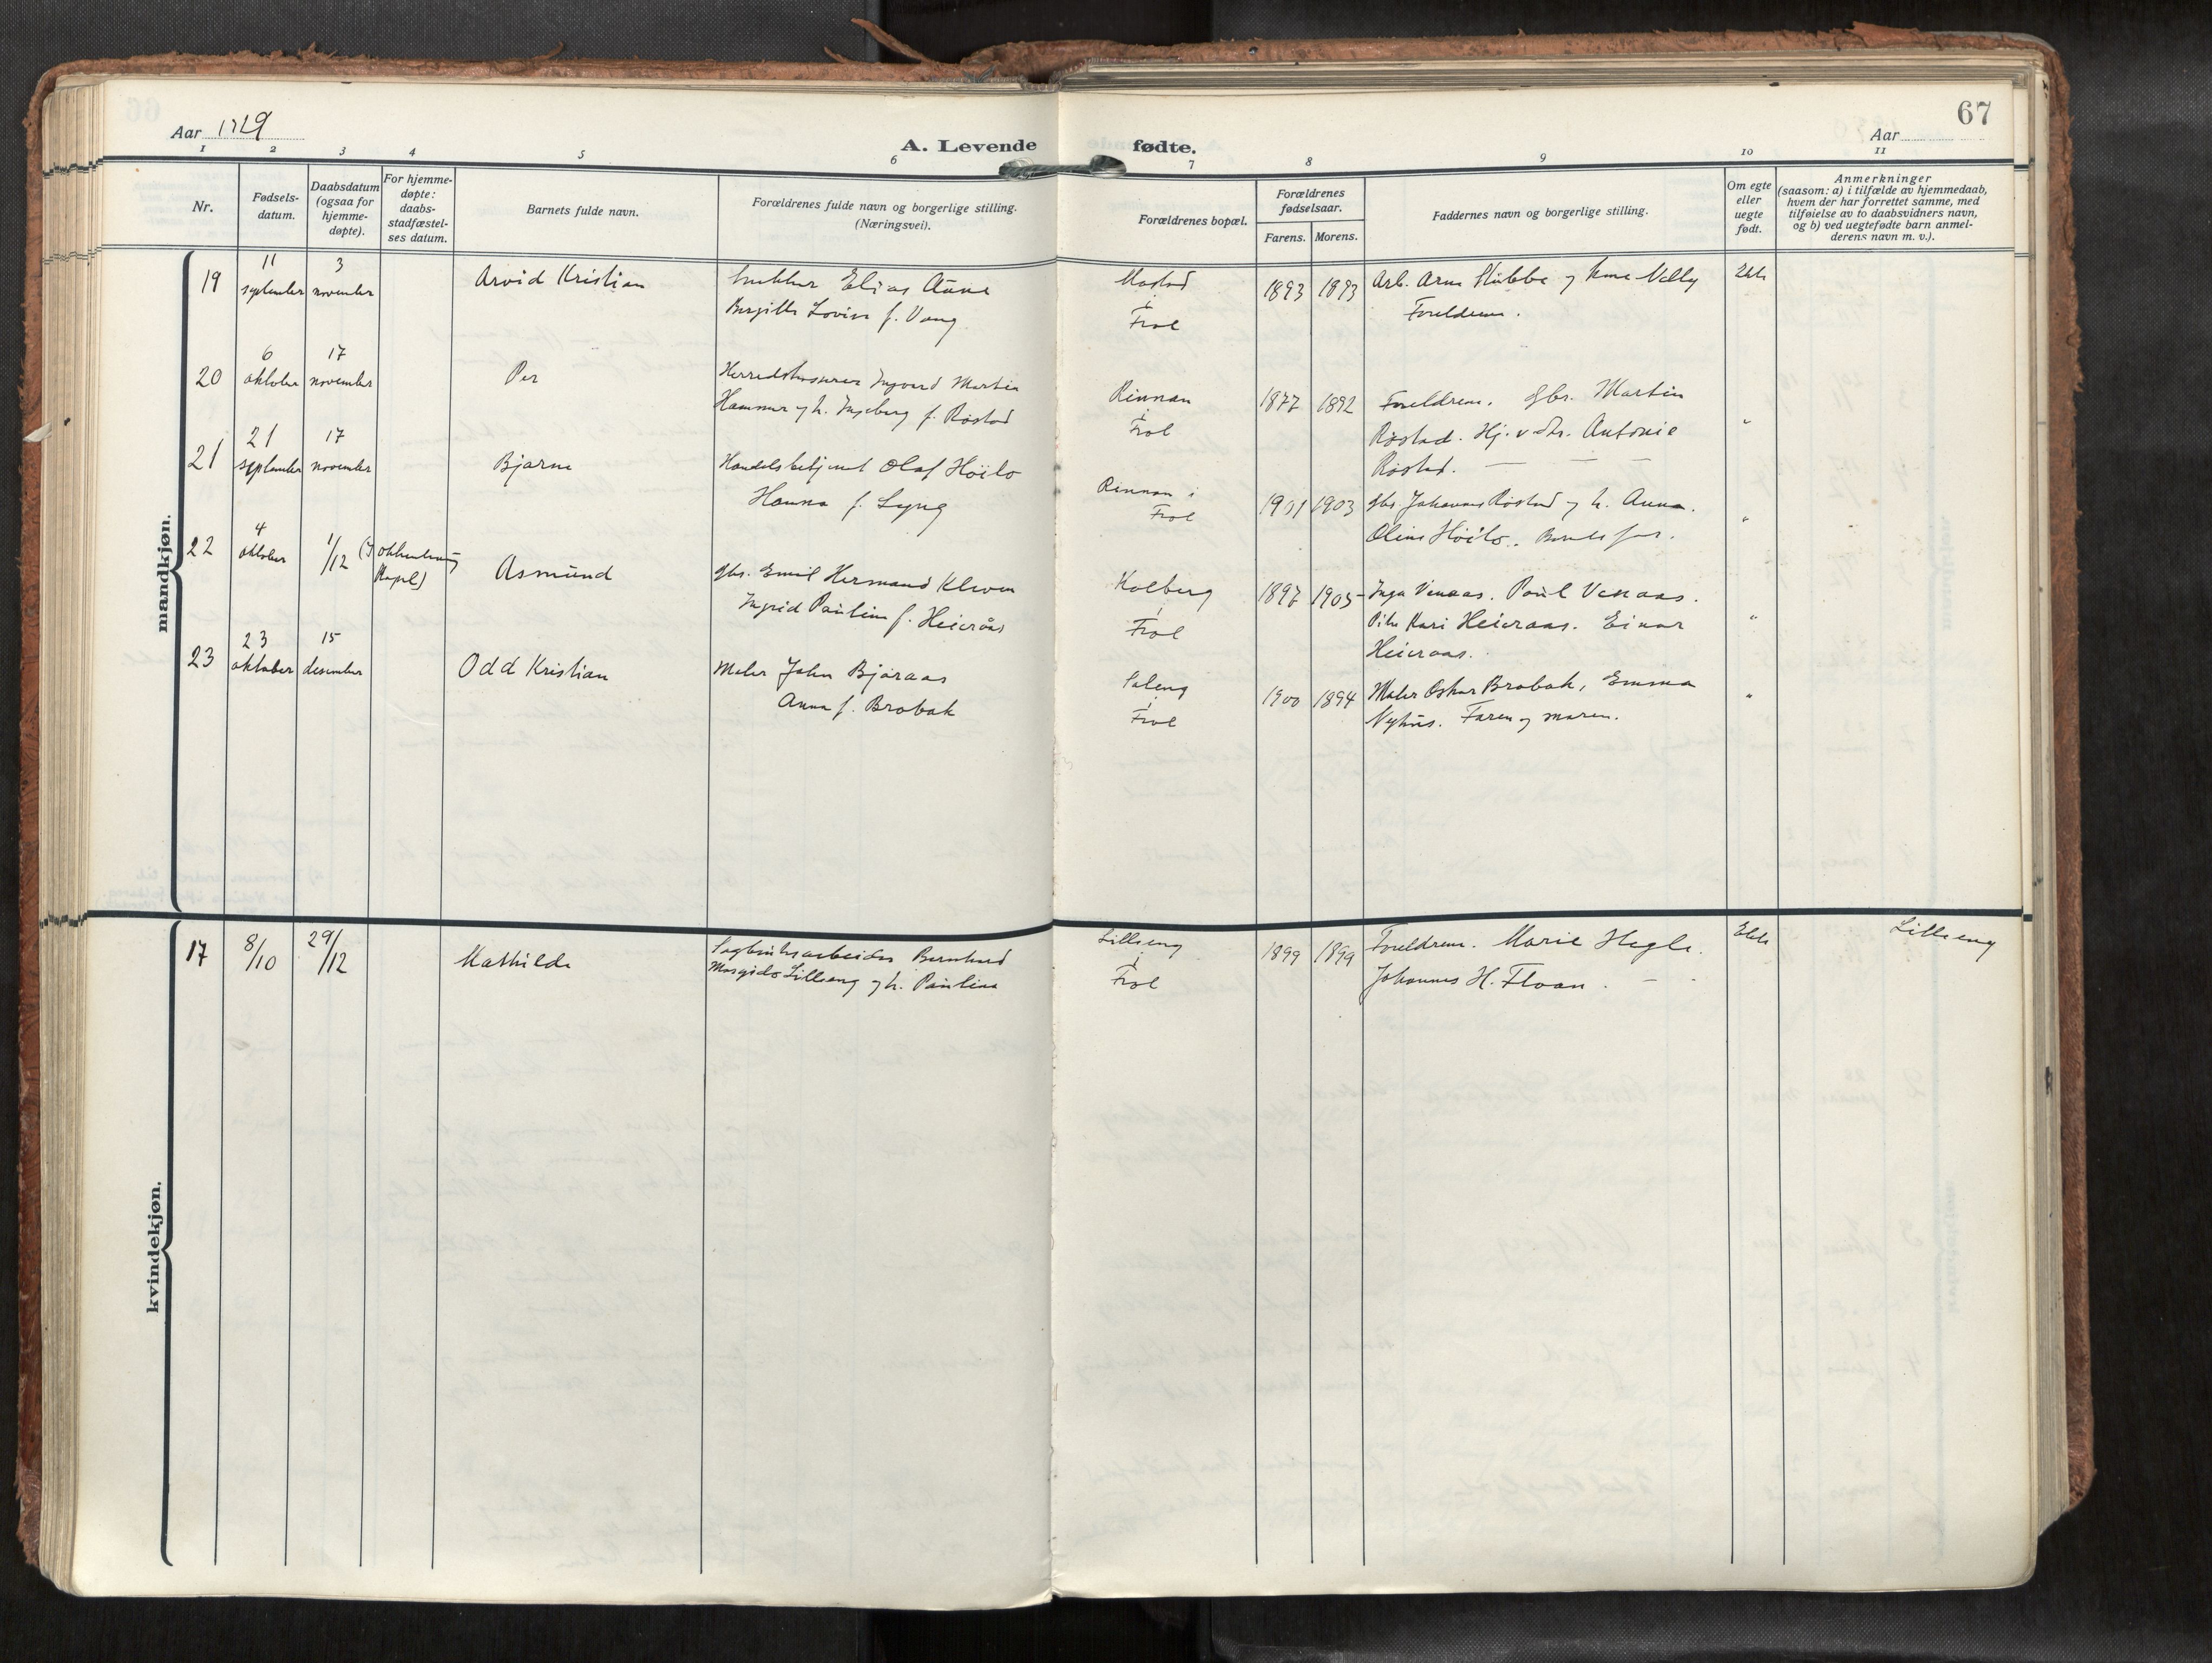 Aar 1929
A. Levende fødte.
Aar
67
1 2 3 4 5 6 7 8 9 10 11
Nr.
Fødsels-
datum.
Daabsdatum
(ogsaa for
hjemme-
døpte).
For hjemme-
døpte:
daabs-
stadfæstel-
ses datum.
Barnets fulde navn.
Forældrenes fulde navn og borgerlige stilling.
(Næringsvei).
Forældrenes bopæl.
Forældrenes
fødselsaar.
Farens. Morens.
Faddernes navn og borgerlige stilling.
Om egte
eller
uegte
født.
Anmerkninger
(saasom: a) i tilfælde av hjemmedaab,
hvem der har forrettet samme, med
tilføielse av to daabsvidners navn,
og b) ved uegtefødte barn anmel-
derens navn m. v.).
mandkjøn.
19
11
september
3
november
Arvid Kristian
Elias Aune
Birgitte Lovise f. Vang
Mostad
i
Frol
1893 1893
Arb. Arne Stubbe og kone Nelly
Foreldrene.
Ekte
20
6
oktober
17
november
Per
Herredskasserer Ingvard Martin
Hammer og h. Ingeborg f. Røstad
Rinnan
i
Frol
1877 1892
Foreldrene. Gbr. Martin
Røstad. Hj.v. dtr. Antonie
Røstad.
"
21
21
september
17
november
Bjarne
Handelsbetjent Olaf Höilo
Hanna f. Lyng
Rinnan i
Frol
1901 1903
Gbr. Johannes Røstad og h. Anna.
Oline Höilo. Barnets far.
"
22
4
oktober
1/12
(i Okkenhaug
Kapel)
Asmund
Gbr. Emil Hermand Kleven
Ingrid Pauline f. Heieraas
Kolberg
i
Frol
1897 1905
Inga Venaas. Paul Venaas.
Pike Kari Heieraas. Einar
Heieraas.
"
23
23
oktober
15
desember
Odd Kristian
Maler John Bjøraas
Anna f. Brobak
Saleng
i
Frol
1900 1894
Maler Oskar Brobak, Emma
Nyhus. Faren og moren.
"
kvindekjøn.
17
8/10
29/12
Mathilde
Sagbruksarbeider Bernhard
Margido Lilleeng og h. Pauline
Lilleeng
i
Frol
1899 1899
Foreldrene. Marie Hegle.
Johannes H. Floan.
Ekte
Lilleeng